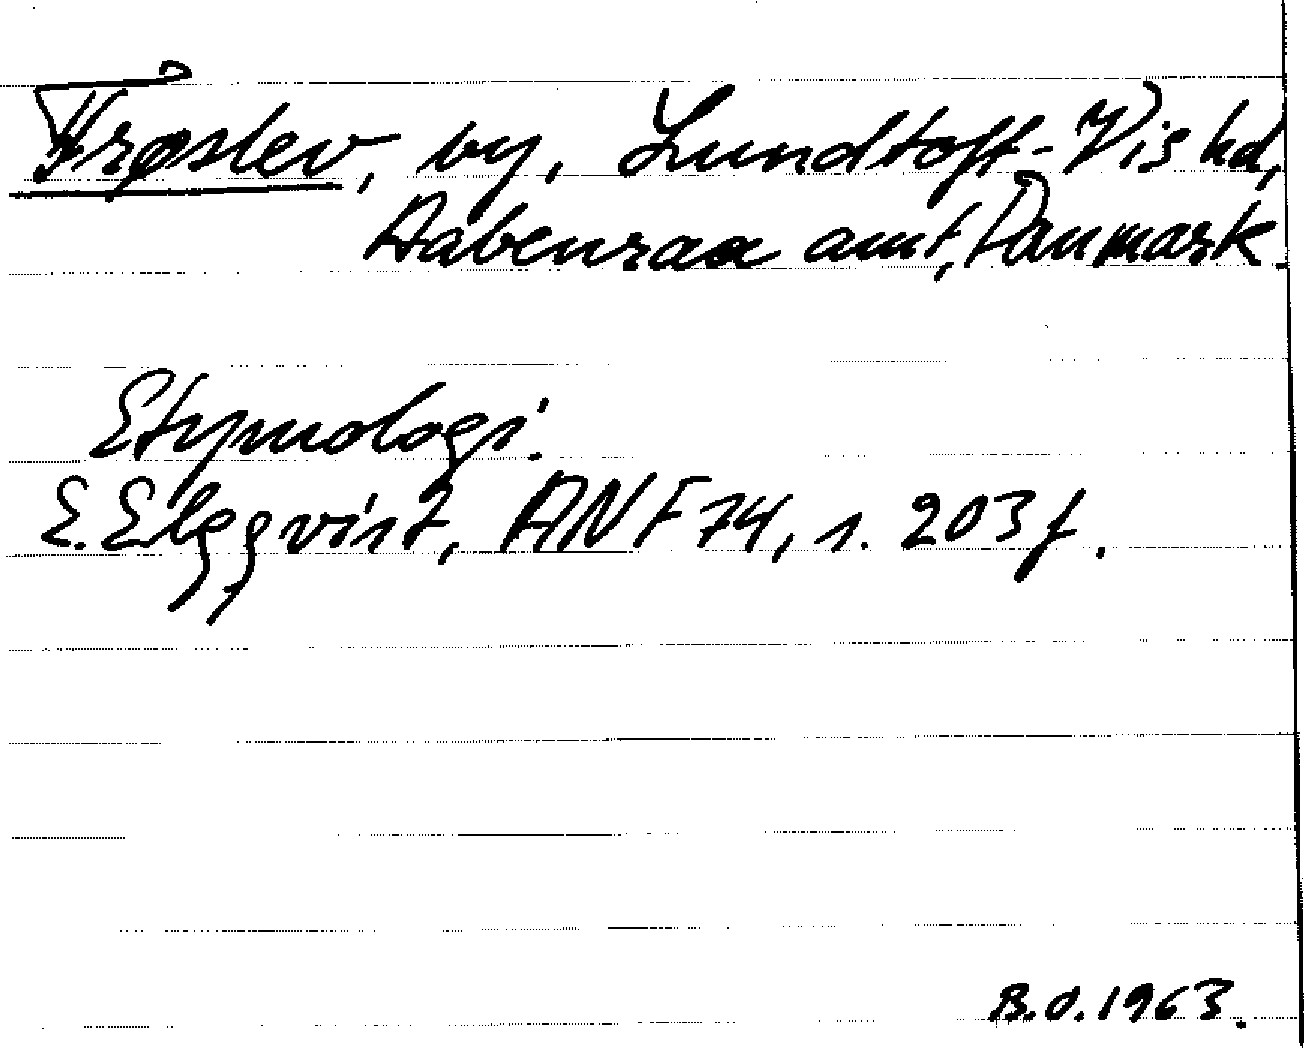 Frøslev, by, Lundtoft-Vis hd,
Aabenraa amt, Danmark.
Etymologi.
E. Elgqvist, ANF 74, s. 203 f.
B.O. 1963.